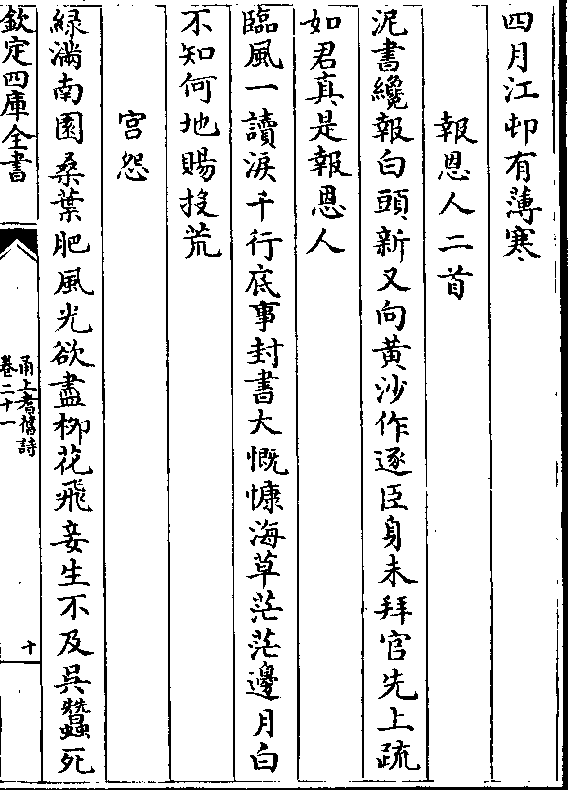 四月江邨有薄寒
報恩人二首
泥書纔報白頭新又向黄沙作逐臣身未拜官先上疏
如君真是報恩人
臨風一讀淚千行底事封書大慨慷海草茫茫邊月白
不知何地賜投荒
宫怨
緑滿南園桑葉肥風光欲盡柳花飛妾生不及吳蠶死
欽定四庫全書
甬上耆舊詩
卷二十一
十